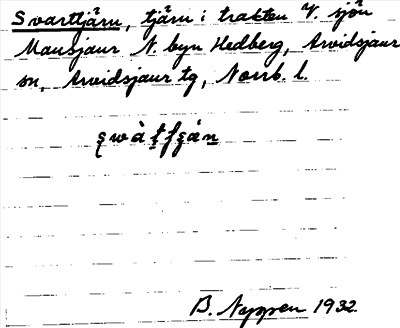 Svarttjärn, tjärn i trakten V. sjön
Mausjaur N. byn Hedberg, Arvidsjaur
sn, Arvidsjaur tg, Norrb. l.
B. Nyppen 1932.